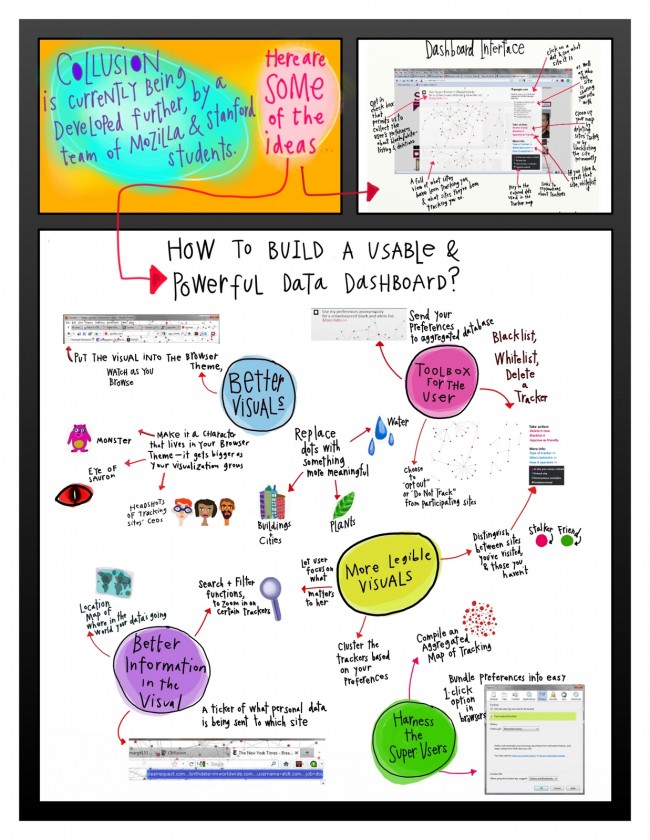 COLLUSION
is currently being
Developed further, by a
team of Mozilla & Stanford
students.
Here are
SOME
of the
ideas...
Dashboard Interface
click on a
dot & see what
site it is
as well
as who
the site
is
sharing
your info
with
Opt in
check box
that
permits us to
collect the
user's preferences
about blacklist/white-
listing & deletions
Clean up
your map
by
deleting
sites
or by
blacklisting
the site
permanently
If you like &
trust that
site, whitelist
A full
view of what sites
have been tracking you,
& what sites they've been
tracking you on.
Key to the
colored dots
used in the
tracker map
Links to
explanations
about trackers
HOW TO BUILD A USABLE &
POWERFUL DATA DASHBOARD?
PUT THE VISUAL INTO THE BROWSER
THEME,
WATCH AS YOU
BROWSE
BETTER
VISUALS
Use my preferences anonymously
for a crowdsourced black and white list.
Send your
preferences
to aggregated database
TOOLBOX
FOR THE
USER
Blacklist,
Whitelist,
Delete
a
Tracker
MONSTER
MAKE it a CHARACTER
that lives in your Browser
Theme—it gets bigger as
your visualization grows
EYE OF
SAURON
HEADSHOTS
OF TRACKING
SITES' CEOS
Replace
dots with
something
more meaningful
Water
Buildings +
Cities
PLANTS
Choose
to
"opt out"
or "Do Not Track"
from participating sites
Take action:
Delete it now
Blacklist it
Approve as friendly
More info:
Distinguish
between sites
you've visited,
& those you
haven't
Stalker
Friend
More Legible
VISUALS
Let user
focus on
what
matters
to her
Search + Filter
functions,
to zoom in on
certain trackers
Location
Map of
where in the
world your data's going
Better
Information
in the
Visual
Cluster the
trackers based
on your
Preferences
Compile an
Aggregated
Map of Tracking
A ticker of what personal data
is being sent to which site
Collusion
The New York Times - Brea...
Harness
the
Super Users
Bundle preferences into easy
1-click
option
in
browsers